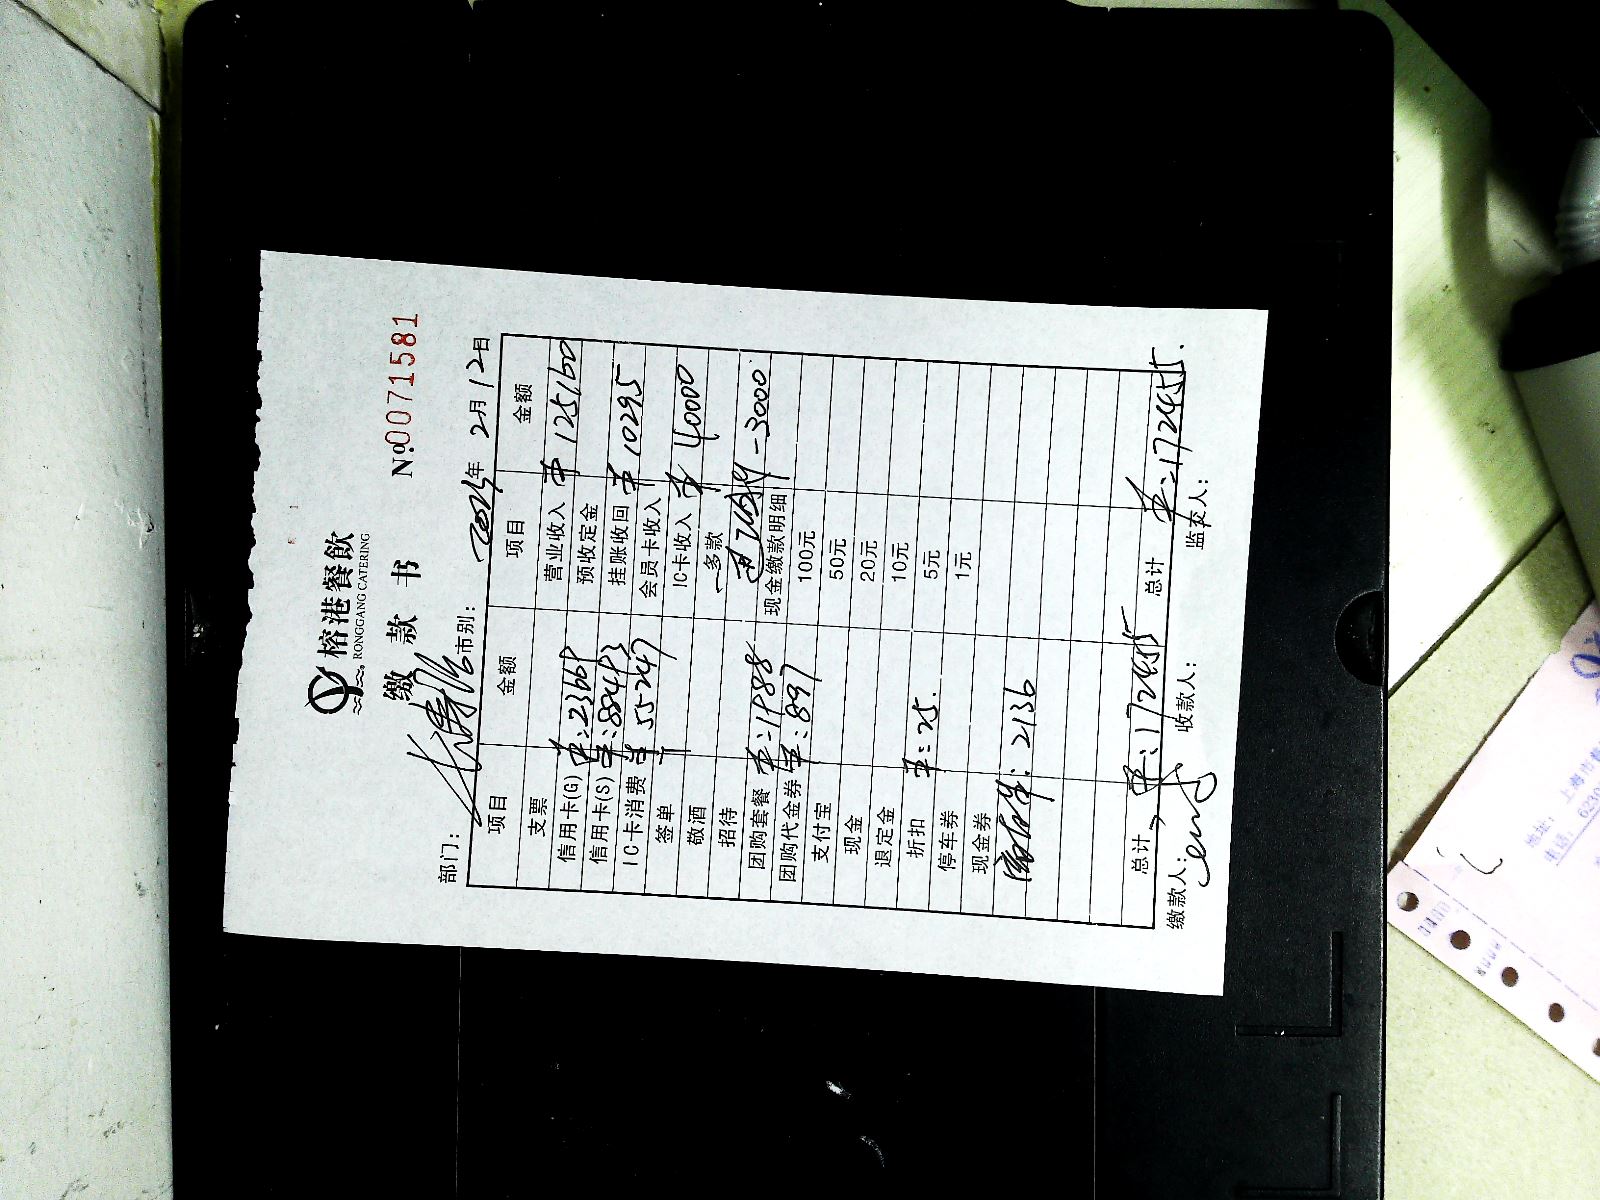 榕港餐飲
RONGGANG CATERING
缴 款 书
№0071581
部门： 市别： 年 2月 12日
项目 金额 项目 金额
支票 营业收入 125160
信用卡(G) 23669 预收定金
信用卡(S) 88493 挂账收回 10295
IC卡消费 55247 会员卡收入
签单 IC卡收入 40000
敬酒 多款
招待 -3000
团购套餐 1988 现金缴款明细
团购代金券 897 100元
支付宝 50元
现金 20元
退定金 10元
折扣 25. 5元
停车券 1元
现金券
2136
总计 172455 总计 172455.
缴款人： 收款人： 监交人：
地址： 上海市
电话： 6230